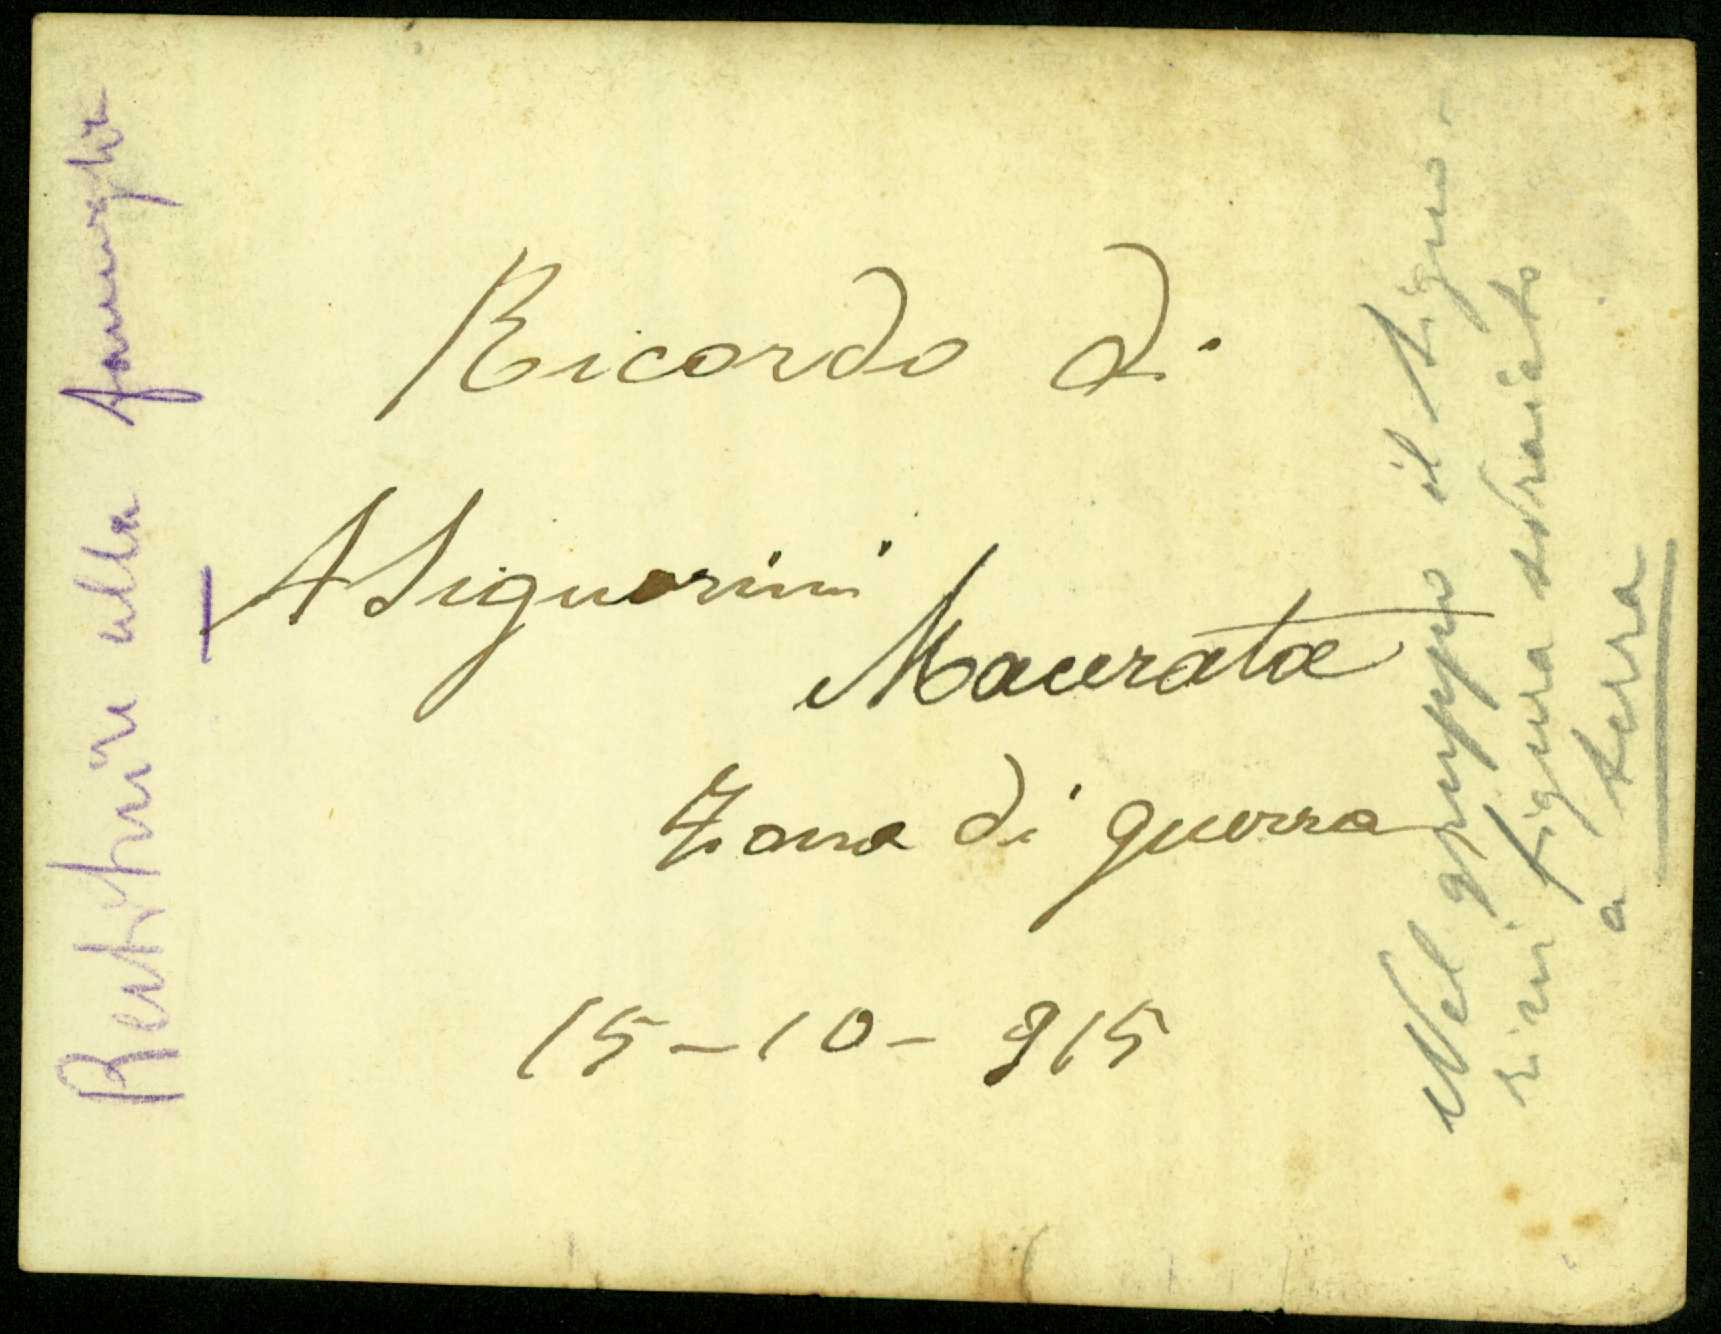 Restituire alla famiglia
Ricordo di
A Signorini
Macerata
Zona di guerra
15-10-915
Nel gruppo il Signo-
rini figura sdraiato
a terra